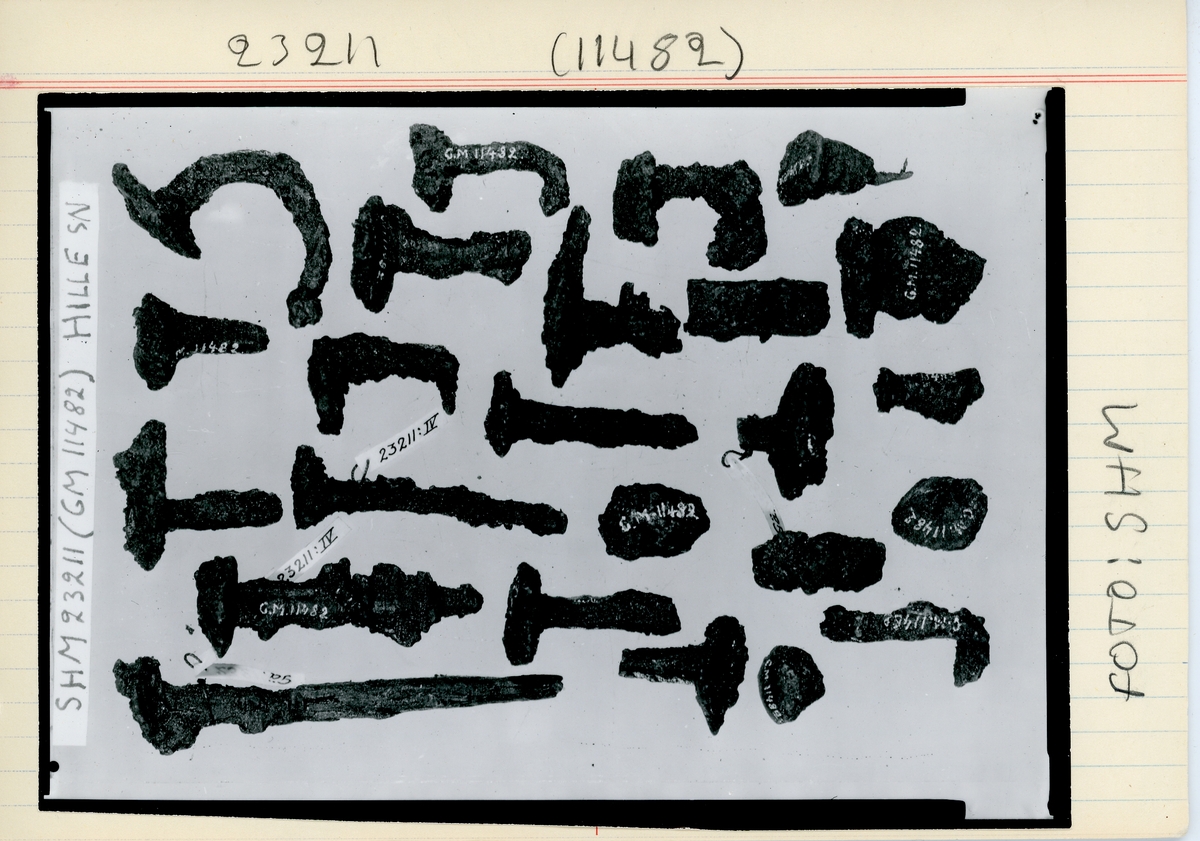 23211 (11482)
SHM 23211 (GM 11482) HILLE SN
FOTO: SHM
G.M 11482
G.M.11482
11482
23211:IV
G.M.11482
G.M.11482
23211:IV
G.M.11482